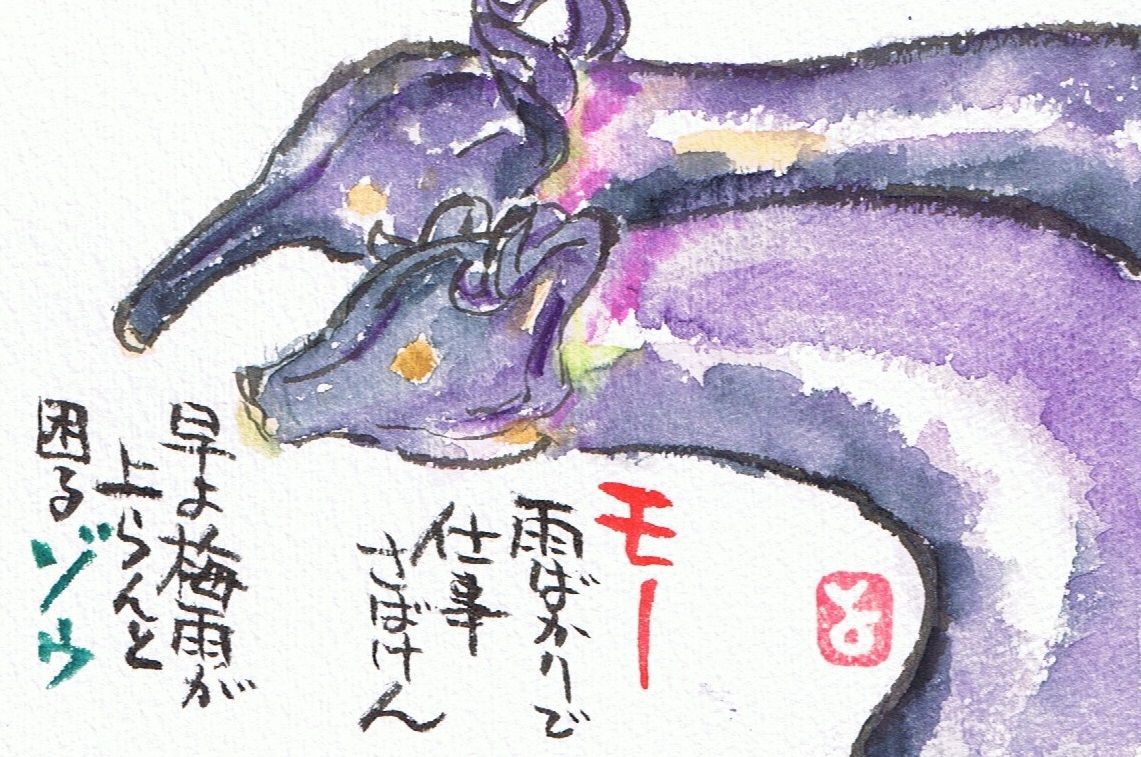 モー
雨ばかりで
仕事
さばけん
早よ梅雨が
上らんと
困るゾウ
と